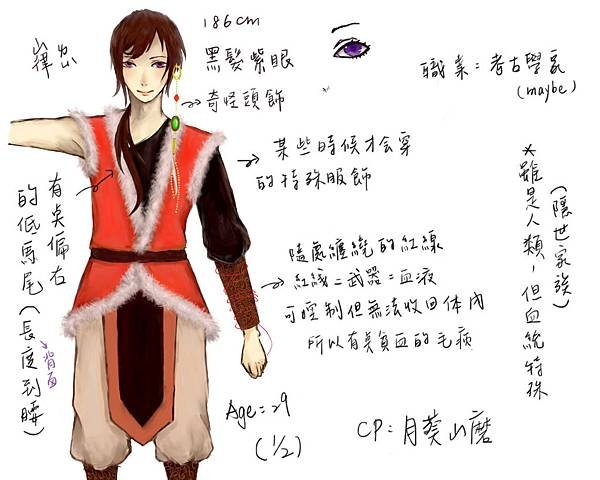 186cm
黑髮紫眼
奇怪頭飾
職業：考古學家
(maybe)
某些時候才会穿
的特殊服飾
有点偏右
的低馬尾(長度到腰)
背面
隨處纏繞的紅線
紅線=武器=血液
可控制但無法收回体内
所以有貧血的毛病
(隱世家族)
*雖是人類，但血統特殊
Age=29
(1/2)
CP:月葵山磨